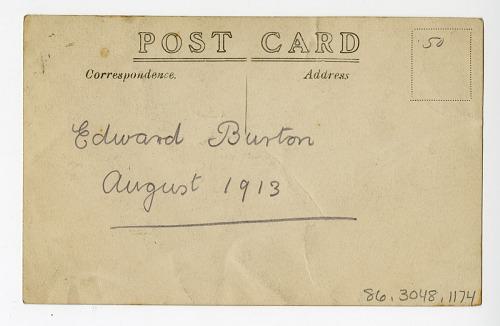 POST CARD
Correspondence. Address
50
Edward Burton
August 1913
86.3048.1174